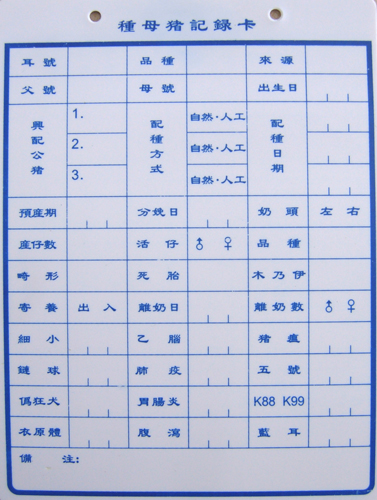 種母猪記録卡
耳號 品種 來源
父號 母號 出生日
興配公猪 1. 配種方式 自然·人工 配種日期
2. 自然·人工
3. 自然·人工
預産期 分娩日 奶頭 左 右
産仔數 活仔 ♂ ♀ 品種
畸形 死胎 木乃伊
寄養 出 入 離奶日 離奶數 ♂ ♀
細小 乙腦 猪瘟
鏈球 肺疫 五號
僞狂犬 胃腸炎 K88 K99
衣原體 腹瀉 藍耳
備注: